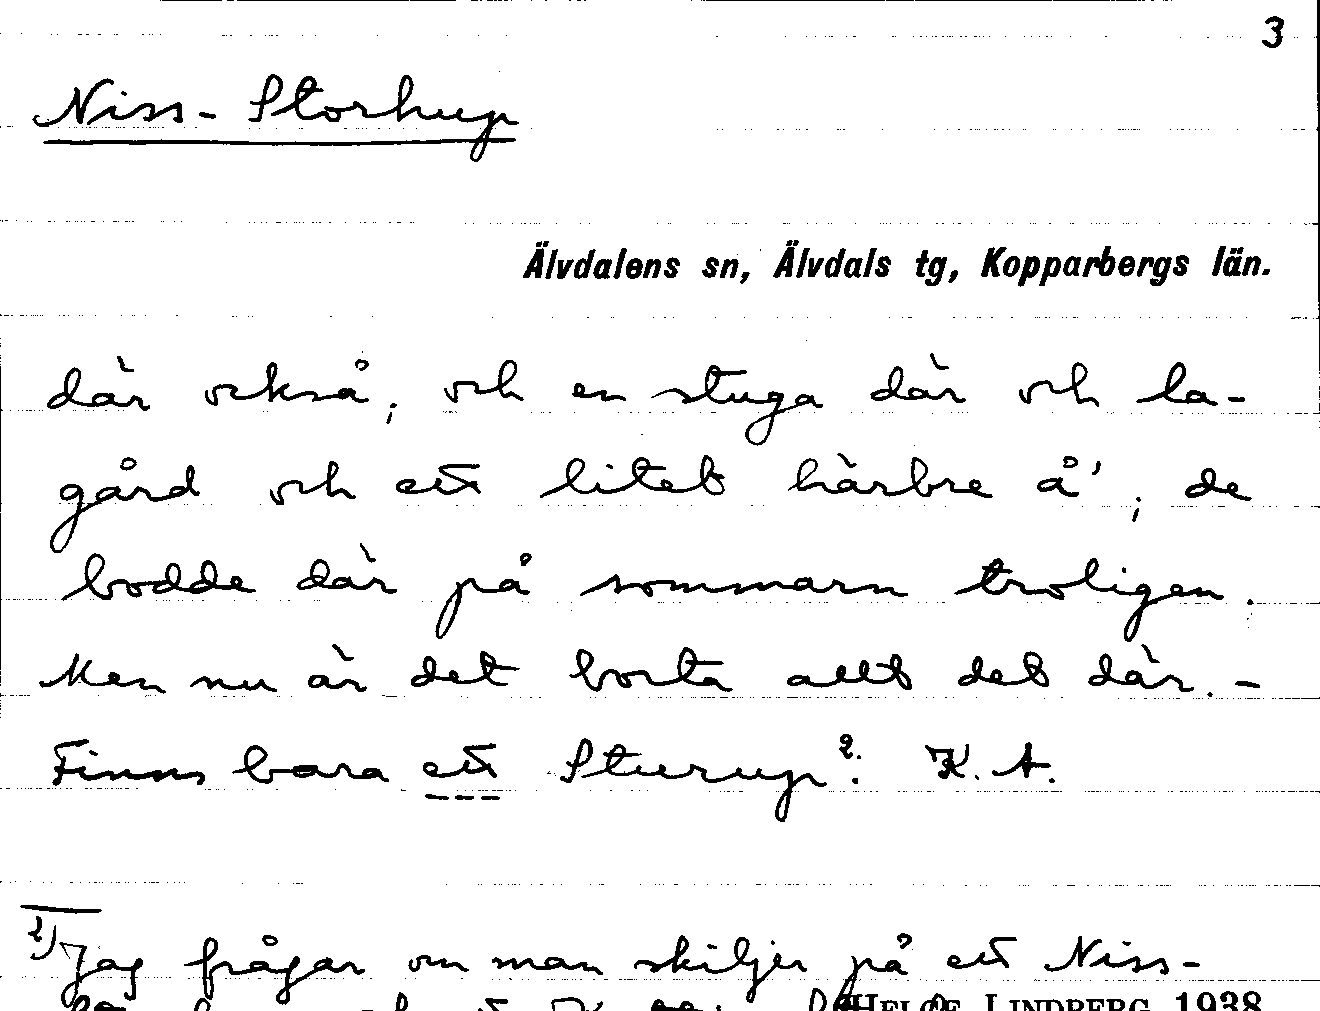 3
Niss-Storhup
Älvdalens sn, Älvdals tg, Kopparbergs län.
där också, och en stuga där och la-
gård och ett litet härbre å', de
bodde där på sommarn troligen.
Men nu är det borta allt det där.-
Finns bara ett Sturup². K.A.
2) Jag frågar om man skiljer på ett Niss-
HELGE LINDBERG 1938